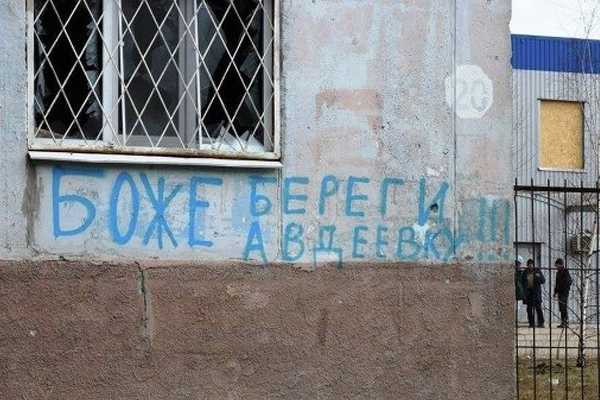 20
БОЖЕ БЕРЕГИ
АВДЕЕВКУ!!!